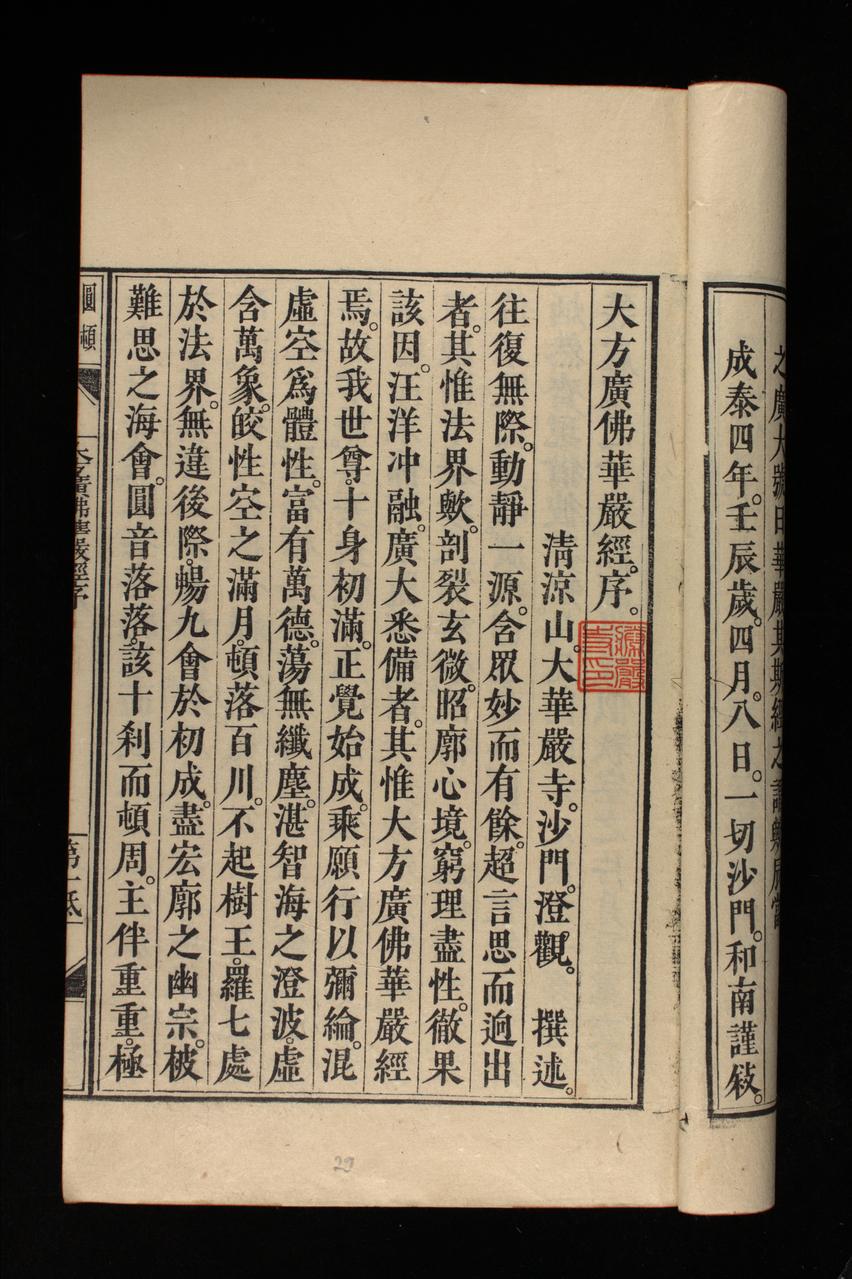 成泰四年。壬辰歲。四月。八日。一切沙門。和南謹敍。
大方廣佛華嚴經。序。
清涼山。大華嚴寺。沙門。澄觀。 撰述。
往復無際。動靜一源。含眾妙而有餘。超言思而逈出
者。其惟法界歟。剖裂玄微。昭廓心境。窮理盡性。徹果
該因。汪洋冲融。廣大悉備者。其惟大方廣佛華嚴經
焉。故我世尊。十身初滿。正覺始成。乘願行以彌綸。混
虛空爲體性。富有萬德。蕩無纖塵。湛智海之澄波。虛
含萬象。皎性空之滿月。頓落百川。不起樹王。羅七處
於法界。無違後際。暢九會於初成。盡宏廓之幽宗。被
難思之海會。圓音落落。該十刹而頓周。主伴重重。極
圓頓
廣佛華嚴經序